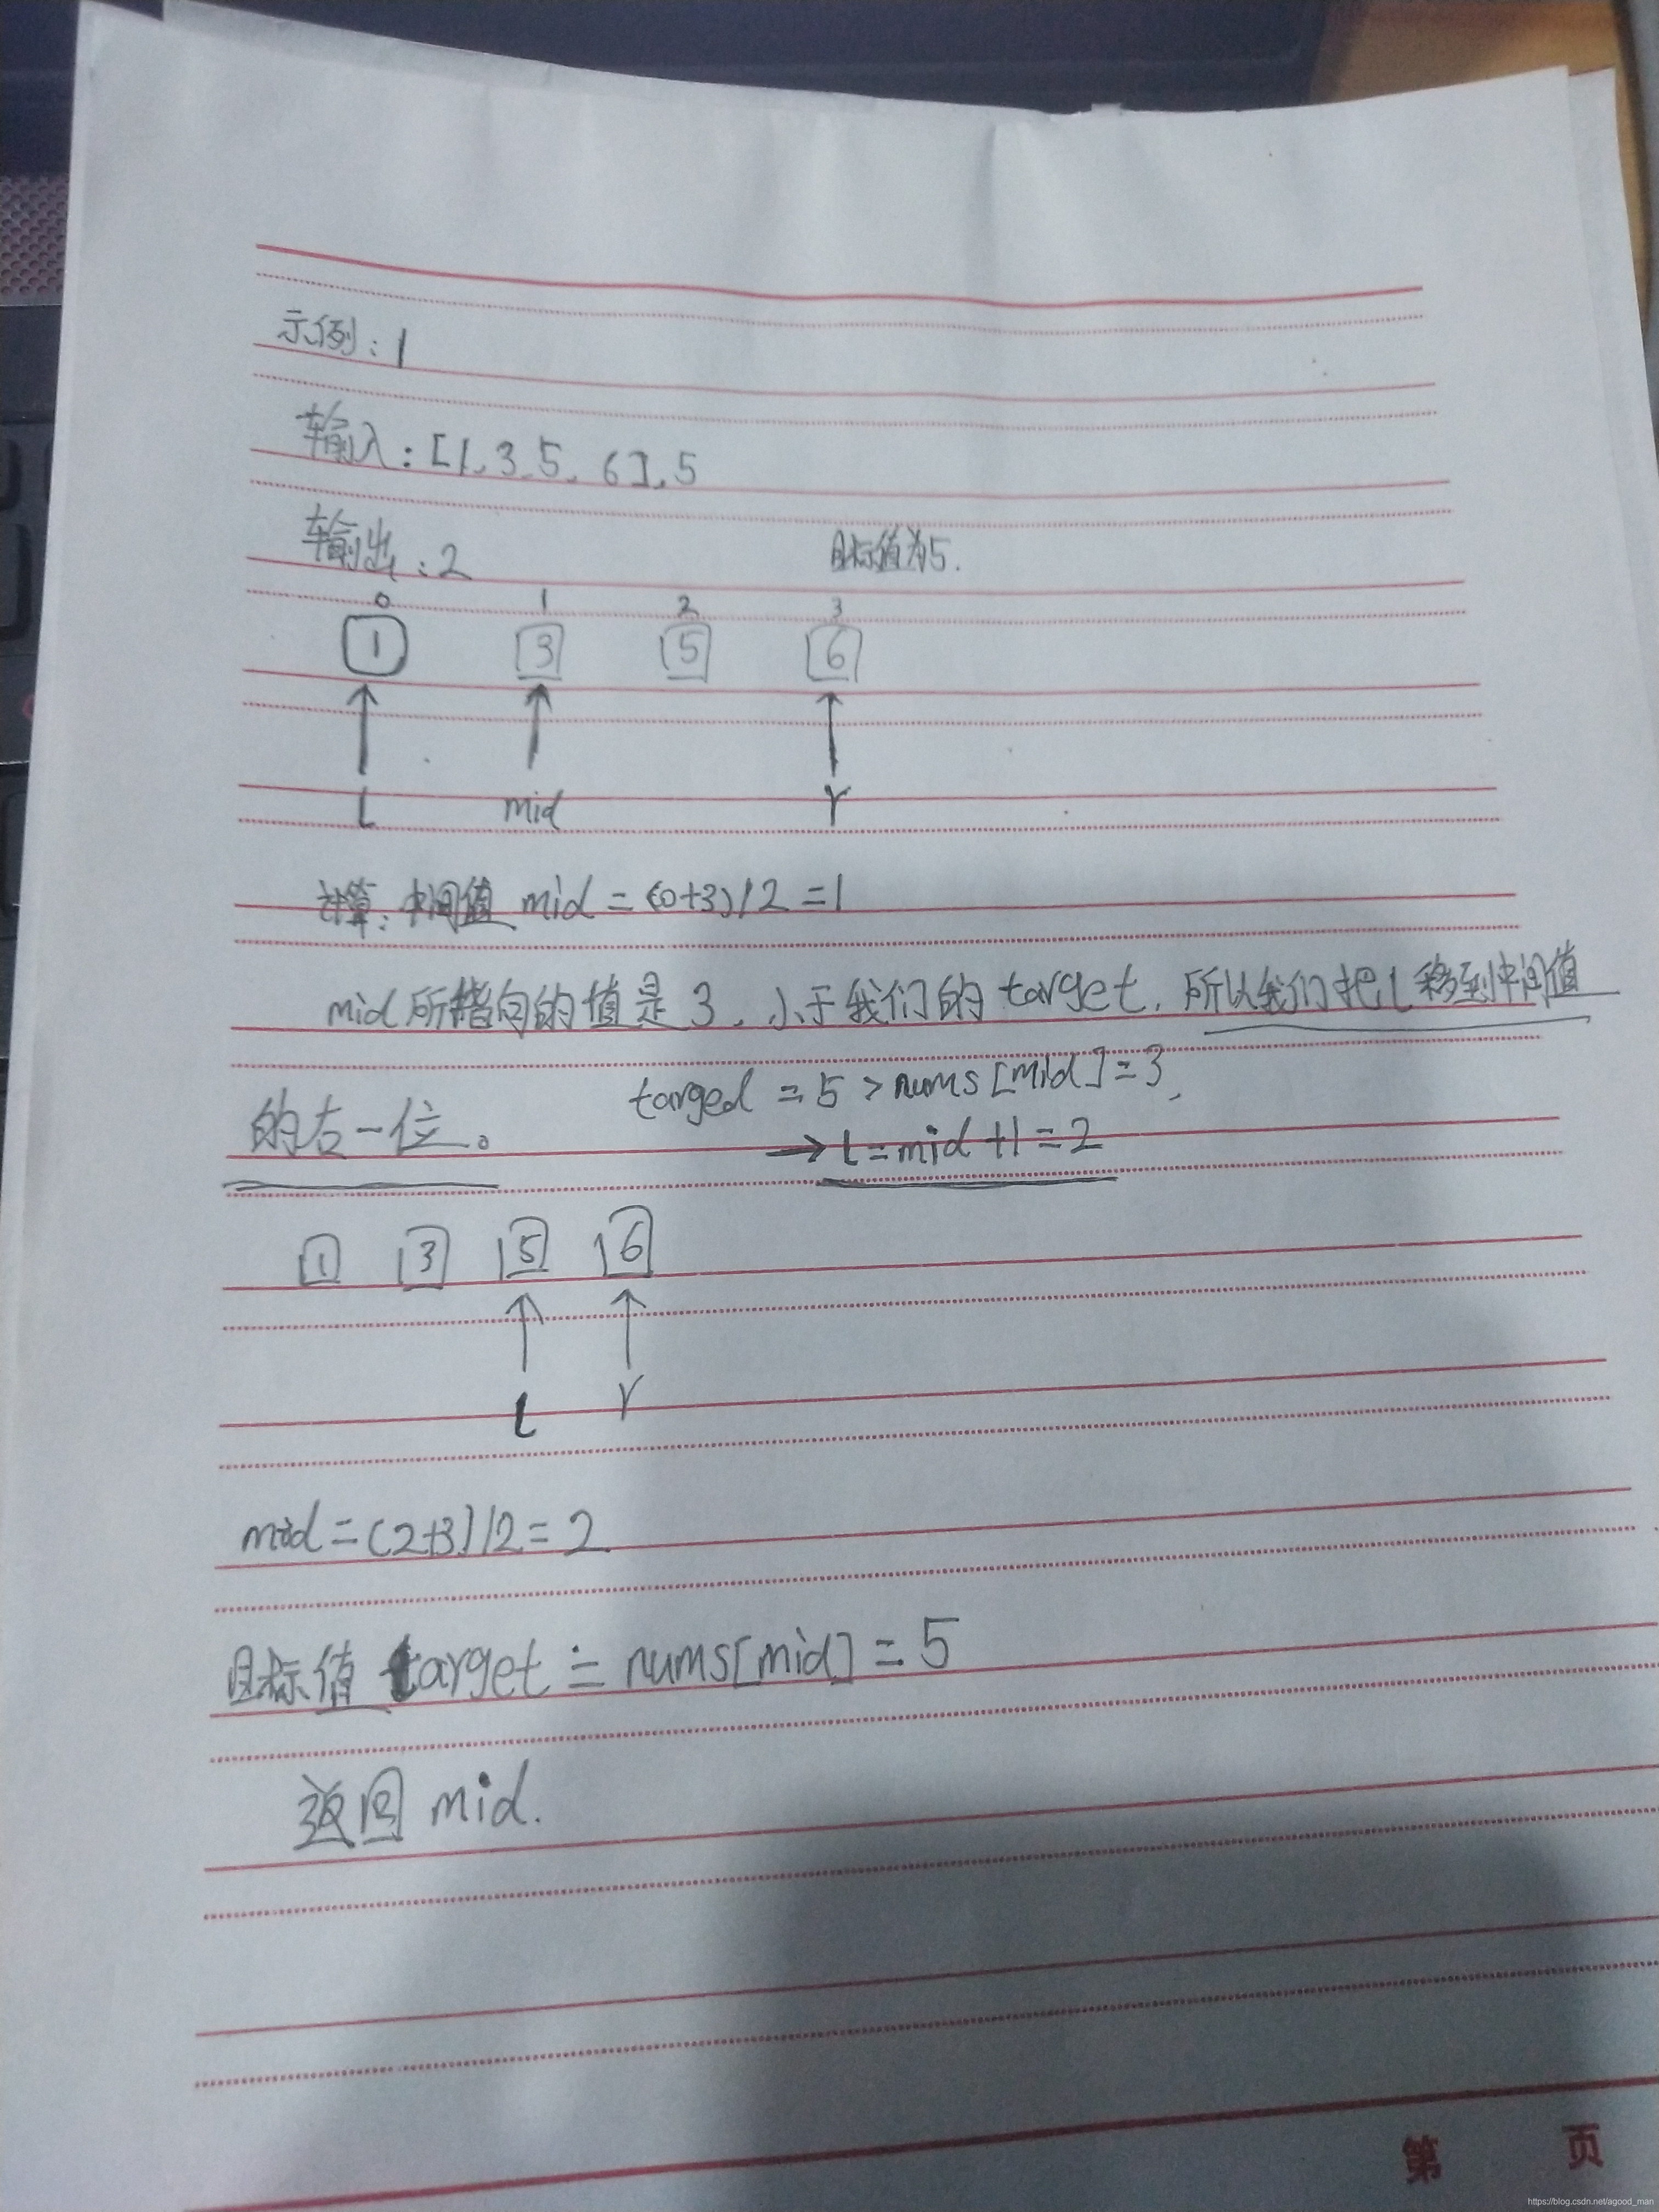 示例:1
输入:[1,3,5,6],5
输出:2
目标值为5.
0 1 2 3
1 3 5 6
l mid r
计算:中间值 mid=(0+3)/2=1
mid所指向的值是3,小于我们的target,所以我们把l移到中间值
的右一位。
targed=5>nums[mid]=3,
→l=mid+1=2
1 3 5 6
l r
mid=(2+3)/2=2
目标值target=nums[mid]=5
返回mid.
第 页
https://blog.csdn.net/agood_man